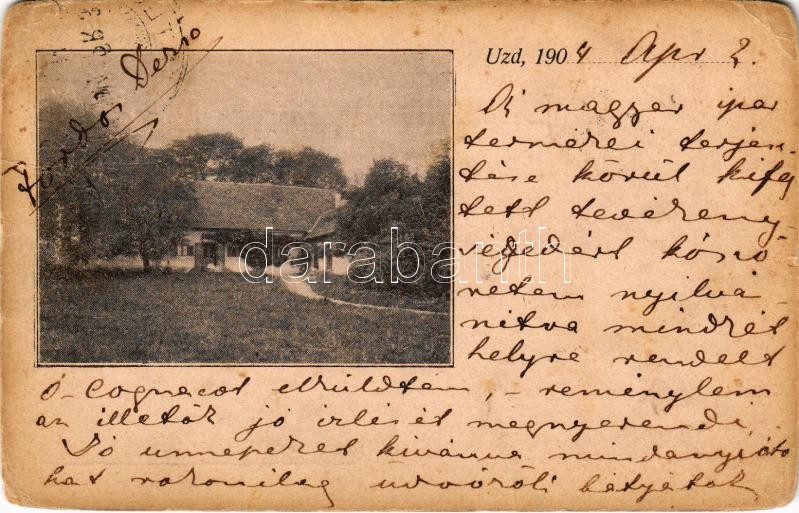 Uzd, 1904 Apr 2.
Dezső
A magyar ipar
termékei terjesz-
tése körül kifej
tett tevékeny
ségedért köszö
netem nyilvá
nitva mindkét
helyre rendelt
ó-cognacot elküldtem, – reménylem
az illetők jó izlését megnyerendi.
Jó ünnepeket kivánva mindanyióto
kat rokonilag üdvözöli bátyátok
darabanth